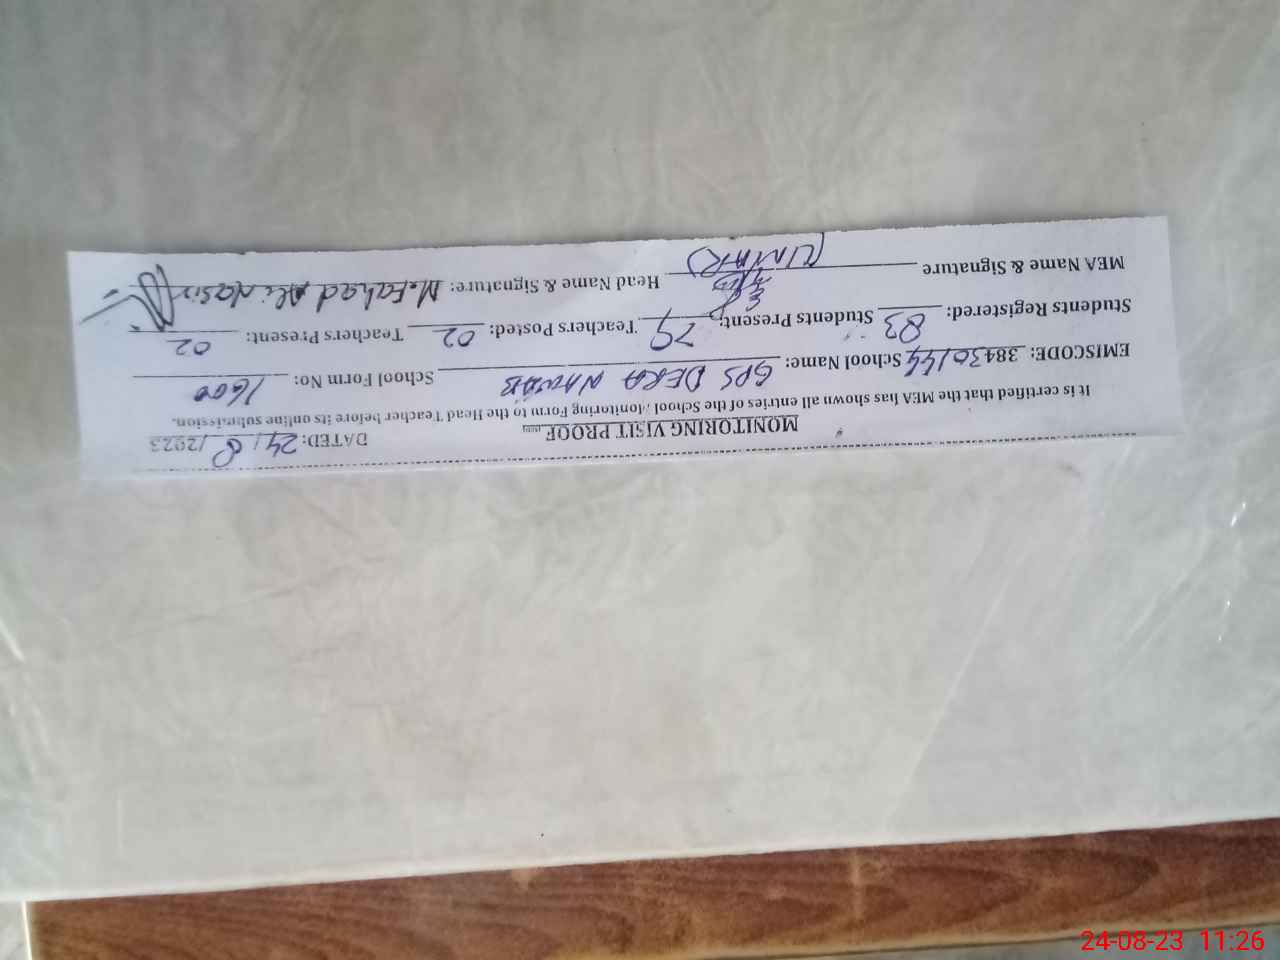 MONITORING VISIT PROOF
DATED: 24/8/2023
It is certified that the MEA has shown all entries of the School Monitoring Form to the Head Teacher before its online submission.
EMISCODE: 38430144 School Name: GPS DERA NAWAB School Form No: 1600
Students Registered: 83 Students Present: 79 Teachers Posted: 02 Teachers Present: 02
MEA Name & Signature Head Name & Signature: M.Fahad Ali Nasir
24-08-23 11:26